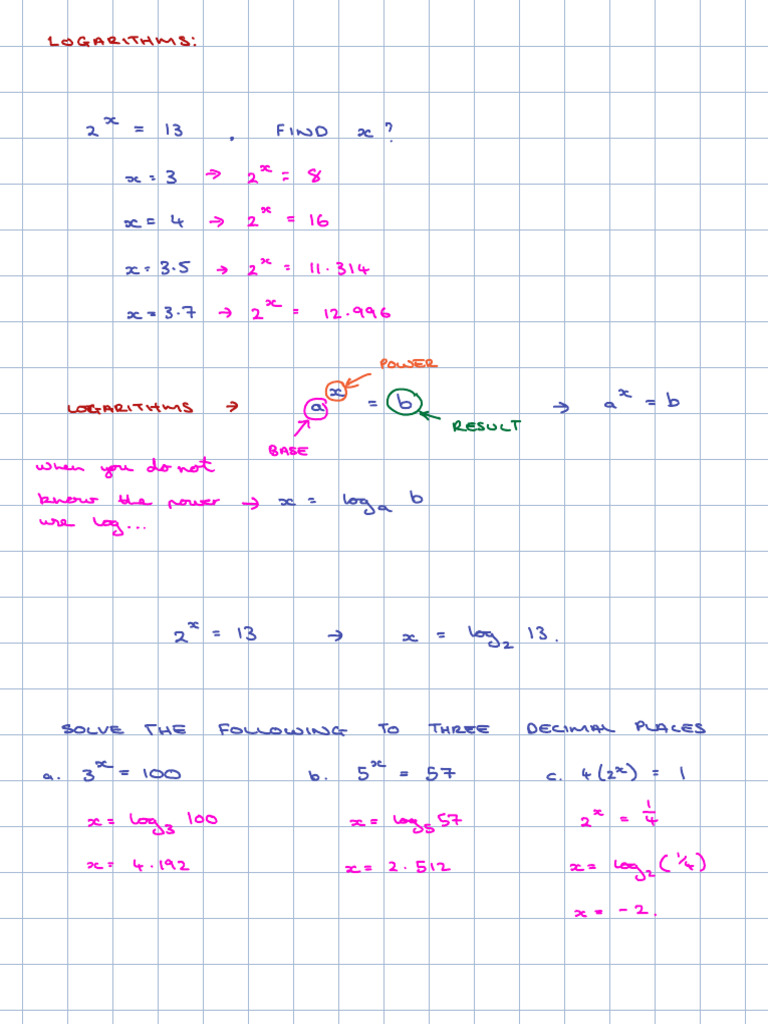 LOGARITHMS:
2^x = 13 , FIND x?
x = 3 → 2^x = 8
x = 4 → 2^x = 16
x = 3.5 → 2^x = 11.314
x = 3.7 → 2^x = 12.996
POWER
LOGARITHMS → a^x = b → a^x = b
RESULT
BASE
when you do not
know the power → x = log_a b
use log...
2^x = 13 → x = log_2 13.
SOLVE THE FOLLOWING TO THREE DECIMAL PLACES
a. 3^x = 100 b. 5^x = 57 c. 4(2^x) = 1
x = log_3 100 x = log_5 57 2^x = 1/4
x = 4.192 x = 2.512 x = log_2 (1/4)
x = -2.